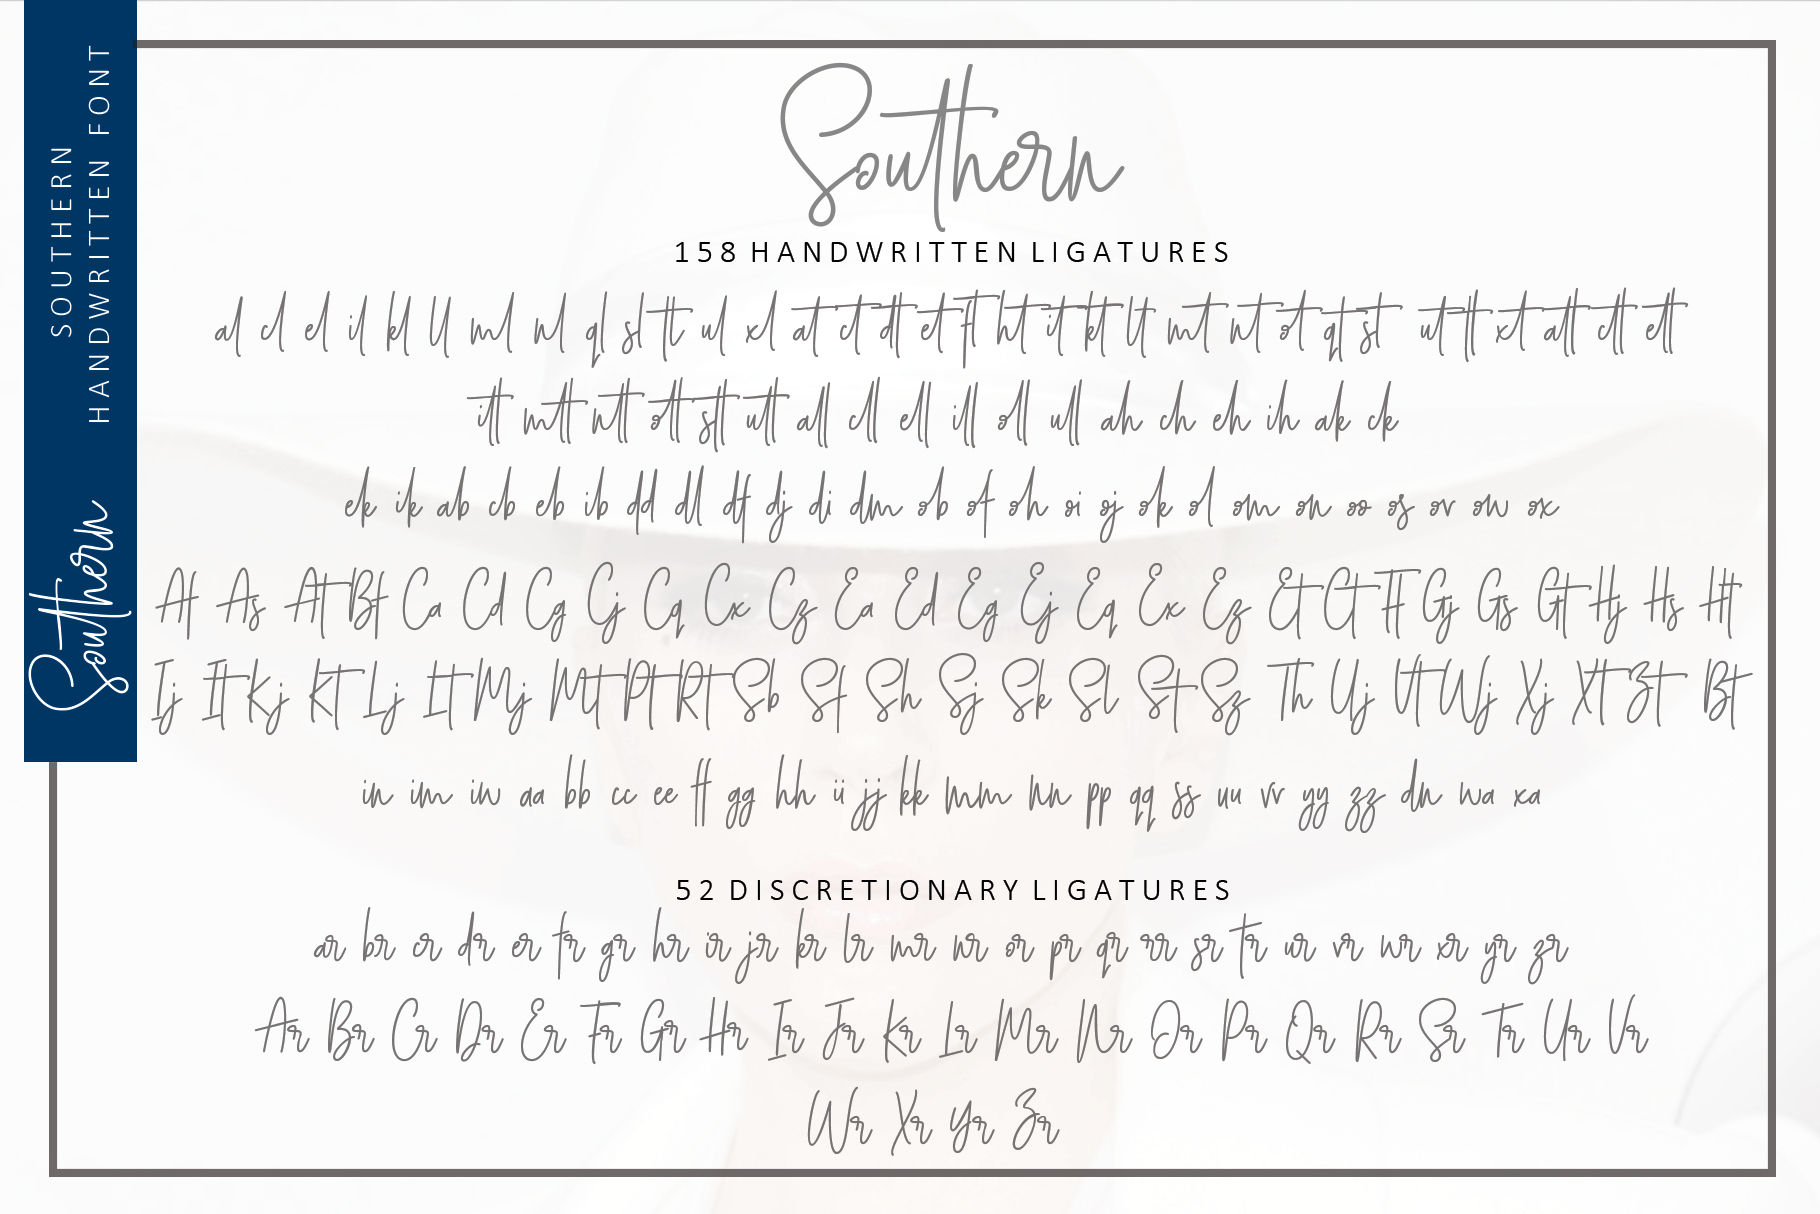 SOUTHERN
HANDWRITTEN FONT
Southern
Southern
158 HANDWRITTEN LIGATURES
al cl el il kl ll ml nl ql sl tt ul xl at ct dt et ft ht it kt lt mt nt ot qt st ut tt xt att ctt ett
itt mtt ntt ott stt utt all cll ell ill oll ull ah ch eh ih ak ck
ek ik ab cb eb ib dd dl df dj di dm ob of oh oi oj ok ol om on oo os ov ow ox
Af As At Bf Ca Cd Cg Cj Cq Cx Cz Ea Ed Eg Ej Eq Ex Ez Et Ct Ft Gj Gs Gt Hj Hs Ht
Ij It Kj Kt Lj Lt Mj Mt Pt Rt Sb Sf Sh Sj Sk Sl St Sz Th Uj Ut Wj Xj Xt Zt Bt
in im iw aa bb cc ee ff gg hh ii jj kk mm nn pp qq ss uu vv yy zz dn wa xa
52 DISCRETIONARY LIGATURES
ar br cr dr er fr gr hr ir jr kr lr mr nr or pr qr rr sr tr ur vr wr xr yr zr
Ar Br Cr Dr Er Fr Gr Hr Ir Jr Kr Lr Mr Nr Or Pr Qr Rr Sr Tr Ur Vr
Wr Xr Yr Zr